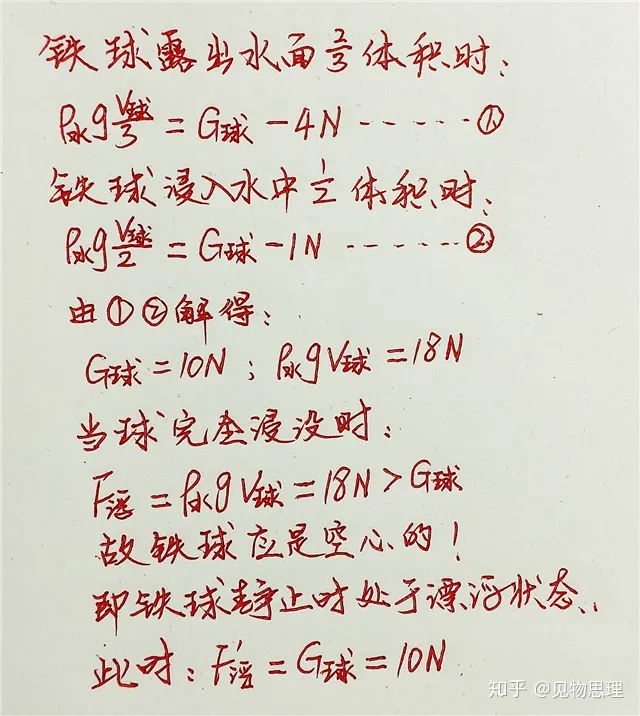 铁球露出水面2/3体积时:
ρ水g V球/3 = G球 - 4N ------①
铁球浸入水中1/2体积时:
ρ水g V球/2 = G球 - 1N ------②
由①②解得:
G球 = 10N ; ρ水gV球 = 18N
当球完全浸没时:
F浮 = ρ水gV球 = 18N > G球
故铁球应是空心的!
即铁球静止时处于漂浮状态..
此时: F浮' = G球 = 10N
知乎 @见物思理